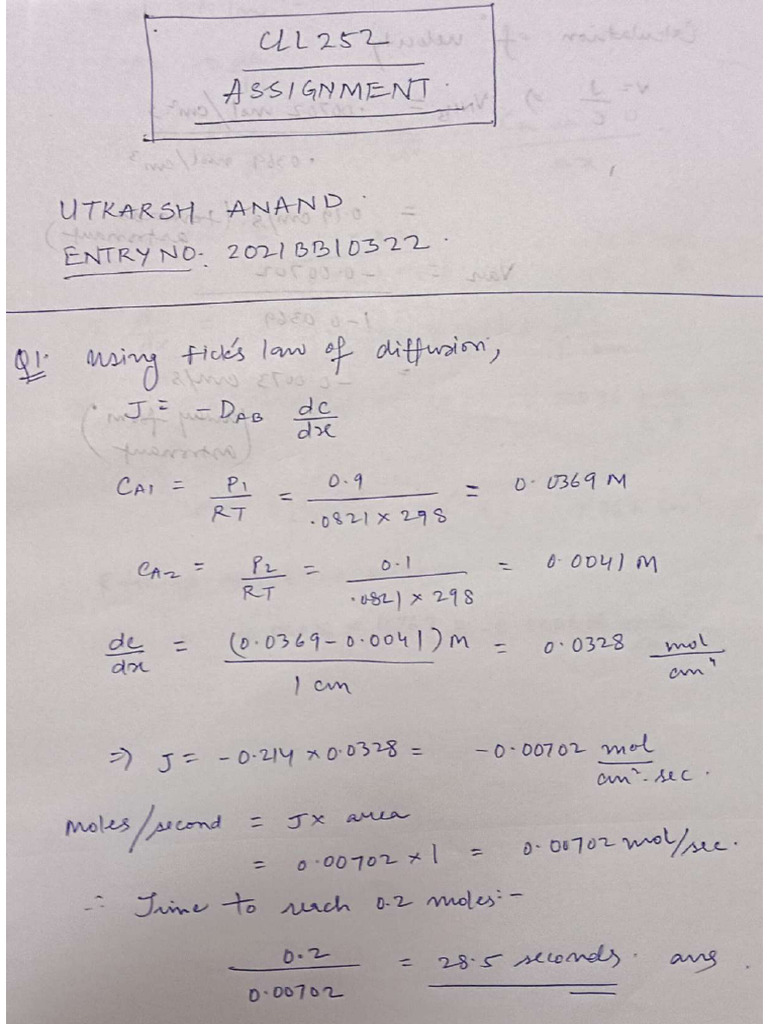 CLL252
ASSIGNMENT.
UTKARSH ANAND.
ENTRY NO: 2021BB10322.
Q1. Using Fick's law of diffusion,
J = - D_AB dc/dx
C_A1 = P1/RT = 0.9/(.0821 × 298) = 0.0369 M
C_A2 = P2/RT = 0.1/(.0821 × 298) = 0.0041 M
dc/dx = (0.0369-0.0041) M/1 cm = 0.0328 mol/cm⁴
⇒ J = -0.214 × 0.0328 = -0.00702 mol/cm². sec.
Moles/second = J × area
= 0.00702 × 1 = 0.00702 mol/sec.
∴ Time to reach 0.2 moles:-
0.2/0.00702 = 28.5 seconds. ans.